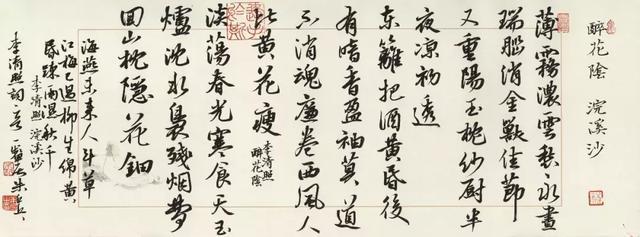 醉花陰 浣溪沙
薄霧濃雲愁永晝
瑞腦消金獸佳節
又重陽玉枕紗厨半
夜凉初透
東籬把酒黄昏後
有暗香盈袖莫道
不消魂簾卷西風人
比黄花瘦
李清照
醉花陰
淡蕩春光寒食天玉
爐沈水裊殘烟夢
回山枕隱花鈿
海燕未來人斗草
江梅已過柳生綿黄
昏疎雨濕秋千
李清照浣溪沙
李清照詞